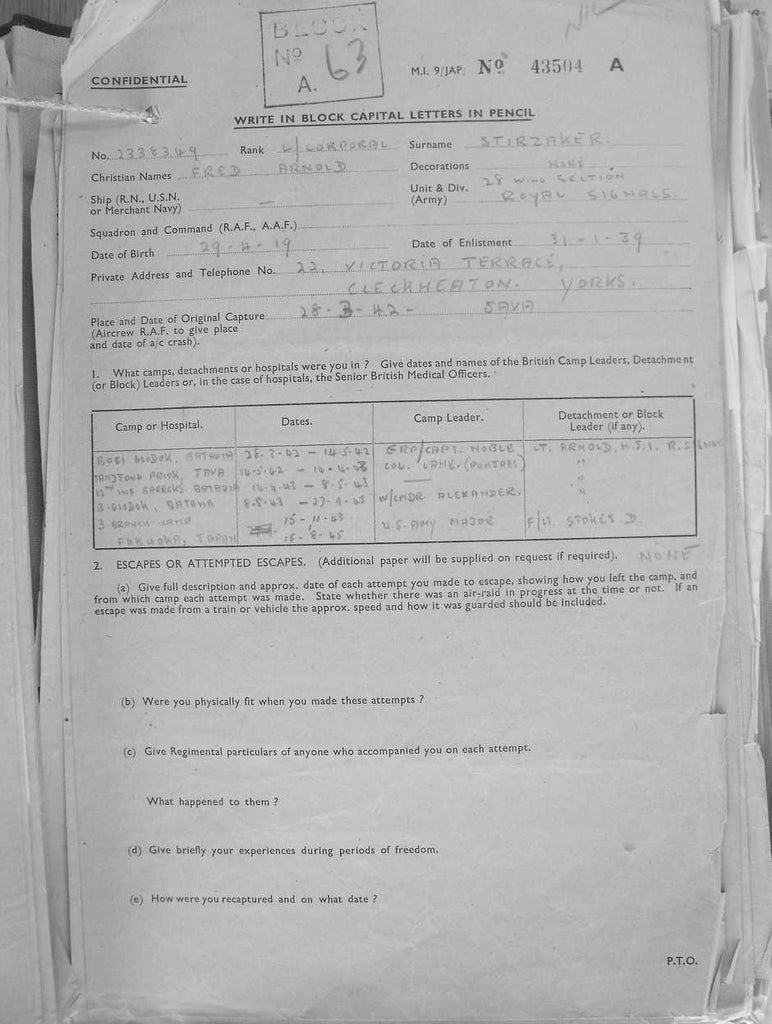 BLOCK
Nº
A. 63
NIL
CONFIDENTIAL
M.I. 9/JAP Nº 43504 A
WRITE IN BLOCK CAPITAL LETTERS IN PENCIL
No. 2338349 Rank L/CORPORAL Surname STIRZAKER.
Christian Names FRED ARNOLD Decorations NONE
Ship (R.N., U.S.N. or Merchant Navy) — Unit & Div. (Army) 28 WING SECTION ROYAL SIGNALS
Squadron and Command (R.A.F., A.A.F.)
Date of Birth 29-4-19 Date of Enlistment 31-1-39
Private Address and Telephone No. 22, VICTORIA TERRACE,
CLECKHEATON. YORKS.
Place and Date of Original Capture 28-3-42- JAVA
(Aircrew R.A.F. to give place
and date of a/c crash).
1. What camps, detachments or hospitals were you in ? Give dates and names of the British Camp Leaders, Detachment
(or Block) Leaders or, in the case of hospitals, the Senior British Medical Officers.
Camp or Hospital. Dates. Camp Leader. Detachment or Block Leader (if any).
BOEI GLODOK, BATAVIA 28-3-42 - 14-5-42 GRP/CAPT. NOBLE LT. ARNOLD, H.J.I. R.SIGNALS
TANDJONG PRIOK, JAVA 14-5-42 - 14-4-43 COL. LANE. (PUNJABS) "
12TH INF BARRECKS. BATAVIA 14-4-43 - 8-5-43 "
B. GLODOK, BATAVIA 8-5-43 - 27-9-43 W/CMDR ALEXANDER. "
3 BRANCH CAMP 15-11-43 U.S. AMY MAJOR F/LT. STOKES D.
FUKUOKA, JAPAN 15-8-45
2. ESCAPES OR ATTEMPTED ESCAPES. (Additional paper will be supplied on request if required). NONE
(a) Give full description and approx. date of each attempt you made to escape, showing how you left the camp, and
from which camp each attempt was made. State whether there was an air-raid in progress at the time or not. If an
escape was made from a train or vehicle the approx. speed and how it was guarded should be included.
(b) Were you physically fit when you made these attempts ?
(c) Give Regimental particulars of anyone who accompanied you on each attempt.
What happened to them ?
(d) Give briefly your experiences during periods of freedom.
(e) How were you recaptured and on what date ?
P.T.O.